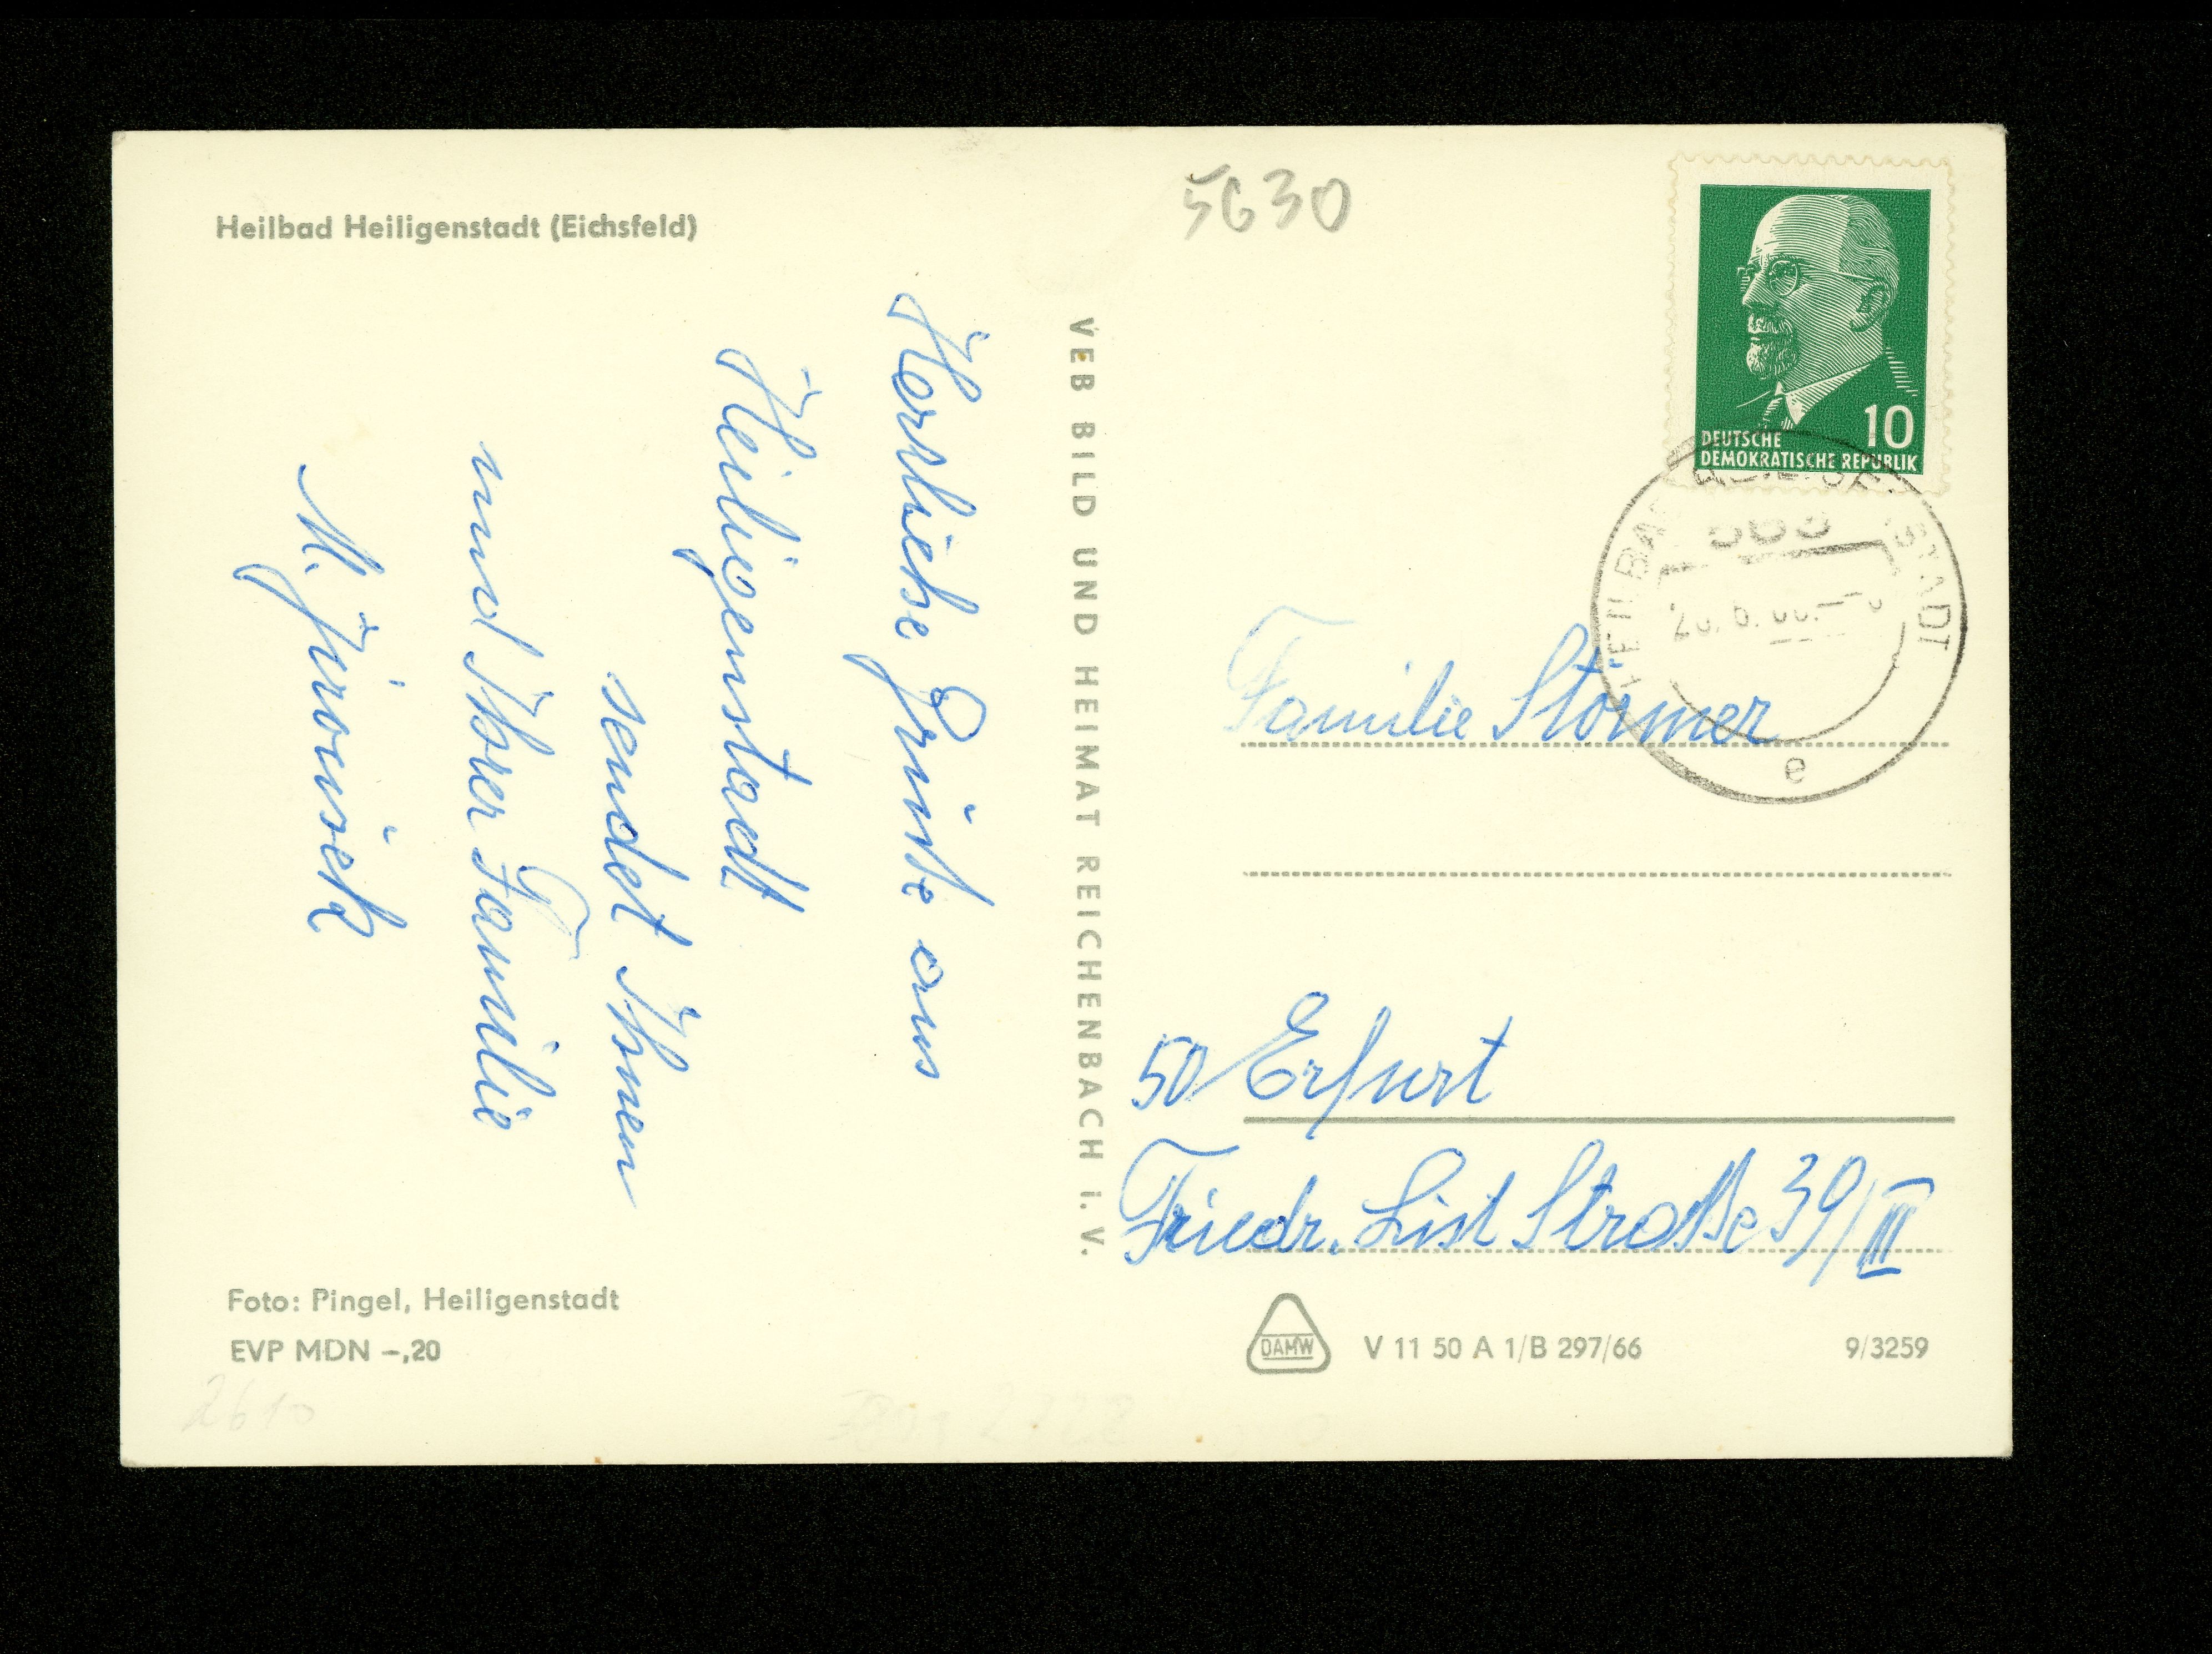 Heilbad Heiligenstadt (Eichsfeld)
5630
Herzliche Grüße aus
Heiligenstadt
sendet Ihnen
und Ihrer Familie
M.
VEB BILD UND HEIMAT REICHENBACH i. V.
10
DEUTSCHE
DEMOKRATISCHE REPUBLIK
STADT
e
Familie Stormer
50 Erfurt
Friedr. List Straße 39/III
Foto: Pingel, Heiligenstadt
EVP MDN –,20
DAMW
V 11 50 A 1/B 297/66
9/3259
2610